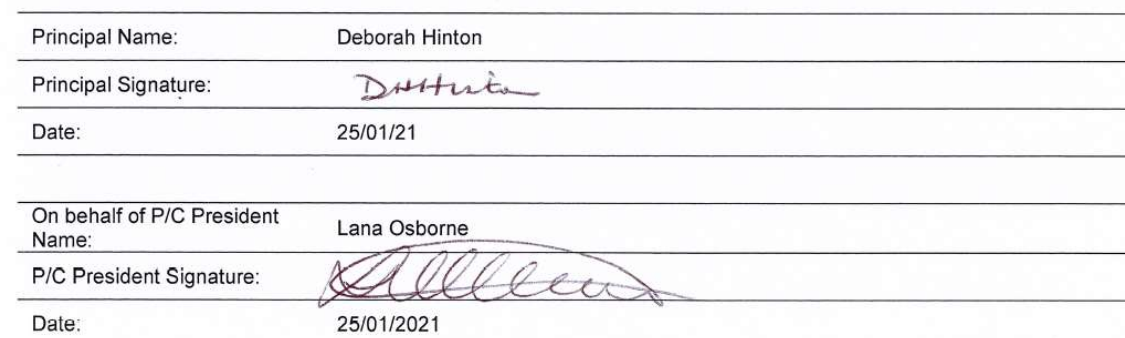 Principal Name: Deborah Hinton
Principal Signature: DHHinton
Date: 25/01/21
On behalf of P/C President
Name: Lana Osborne
P/C President Signature:
Date: 25/01/2021